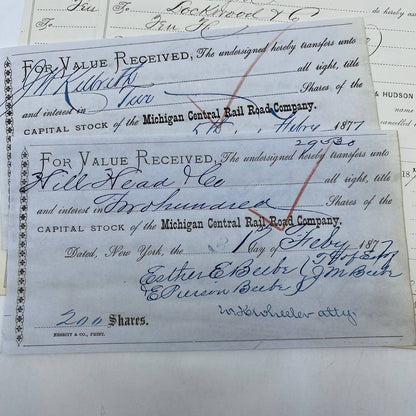 Lockwood & Co
& HUDSON
FOR VALUE RECEIVED, The undersigned hereby transfers unto
all right, title
and interest in Two Shares of the
CAPITAL STOCK of the Michigan Central Rail Road Company.
Feby 1877
29530
FOR VALUE RECEIVED, The undersigned hereby transfers unto
Hill Head & Co all right, title
and interest in Two hundred Shares of the
CAPITAL STOCK of the Michigan Central Rail Road Company.
Dated, New York, the day of Feby 1877
Esther E Beebe
E Pierson Beebe J M Beebe
W H Wheeler atty.
200 Shares.
NESBITT & CO., PRINT.